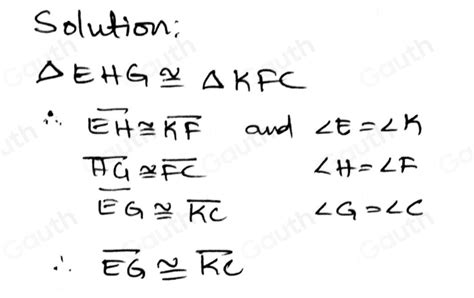 Solution:
△EHG ≅ △KFC
∴ EH ≅ KF and ∠E = ∠K
HG ≅ FC ∠H = ∠F
EG ≅ KC ∠G = ∠C
∴ EG ≅ KC